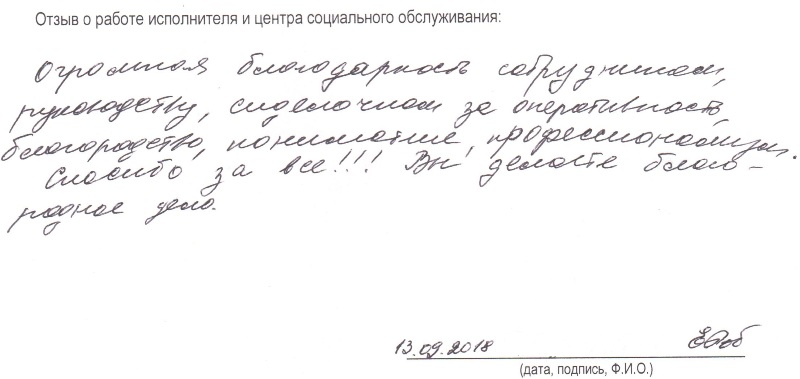 Отзыв о работе исполнителя и центра социального обслуживания:
Огромная благодарность сотрудникам,
руководству, сиделочкам за оперативность,
благородство, понимание, профессионализм.
Спасибо за все!!! Вы делаете благо-
родное дело.
13.09.2018
(дата, подпись, Ф.И.О.)